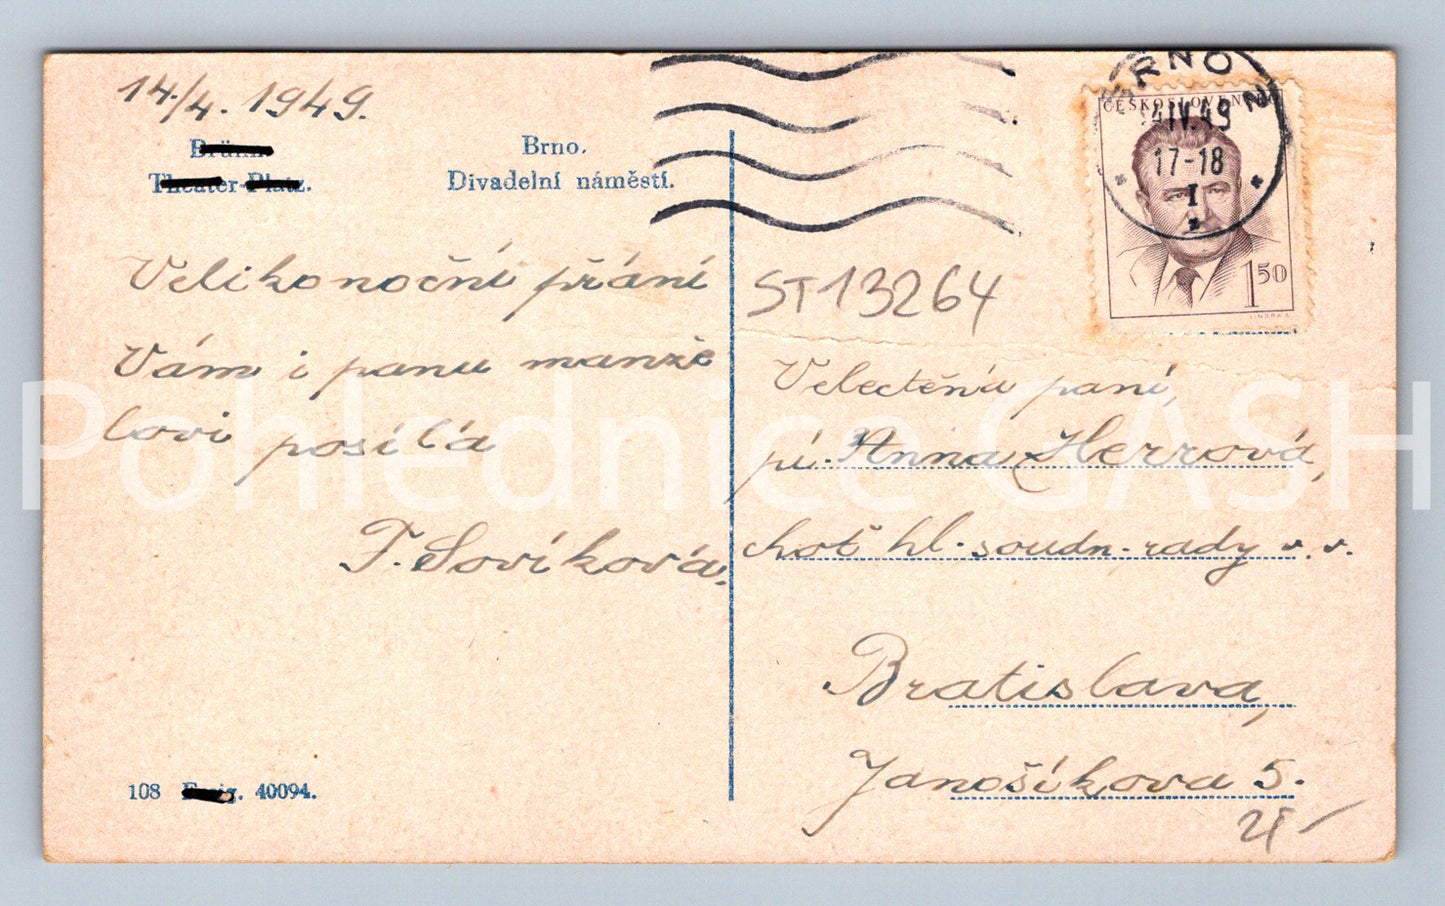 14/4. 1949.
Brünn.
Theater-Platz.
Brno.
Divadelní náměstí.
Velikonoční přání
Vám i panu manže
lovi posílá
F. Sovíková.
108
40094.
BRNO 2
14.IV.49
17-18
I
ČESKOSLOVENSKO
1 50
ST13264
Velectěná paní,
pí. Anna Herrová,
choť hl. soudn. rady v. v.
Bratislava,
Janošíkova 5.
Pohlednice GASH